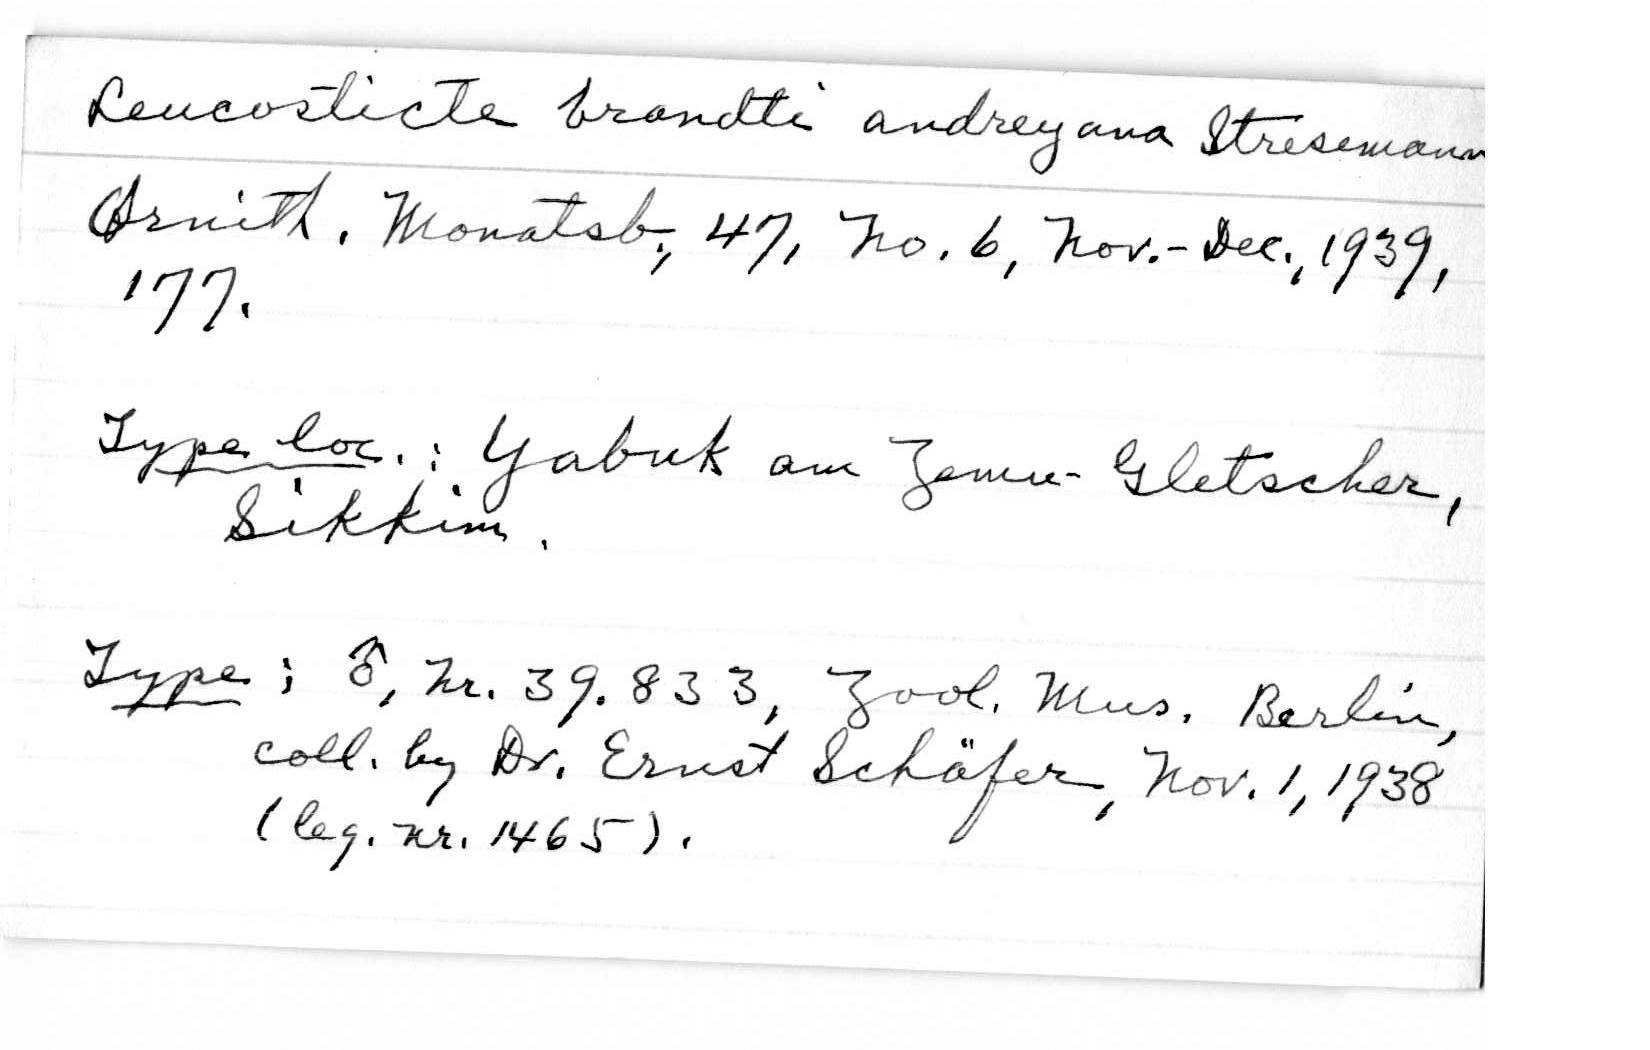 Leucosticte brandti andreyana Stresemann
Ornith. Monatsb., 47, No. 6, Nov.-Dec., 1939,
177.
Type loc.: Yabuk am Zemu-Gletscher,
Sikkim.
Type: ♂, Nr. 39.833, Zool. Mus. Berlin,
coll. by Dr. Ernst Schäfer, Nov. 1, 1938
(leg. nr. 1465).